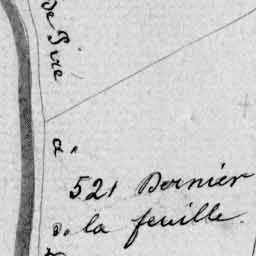 de Piré
à
521 Dernier
de la feuille.